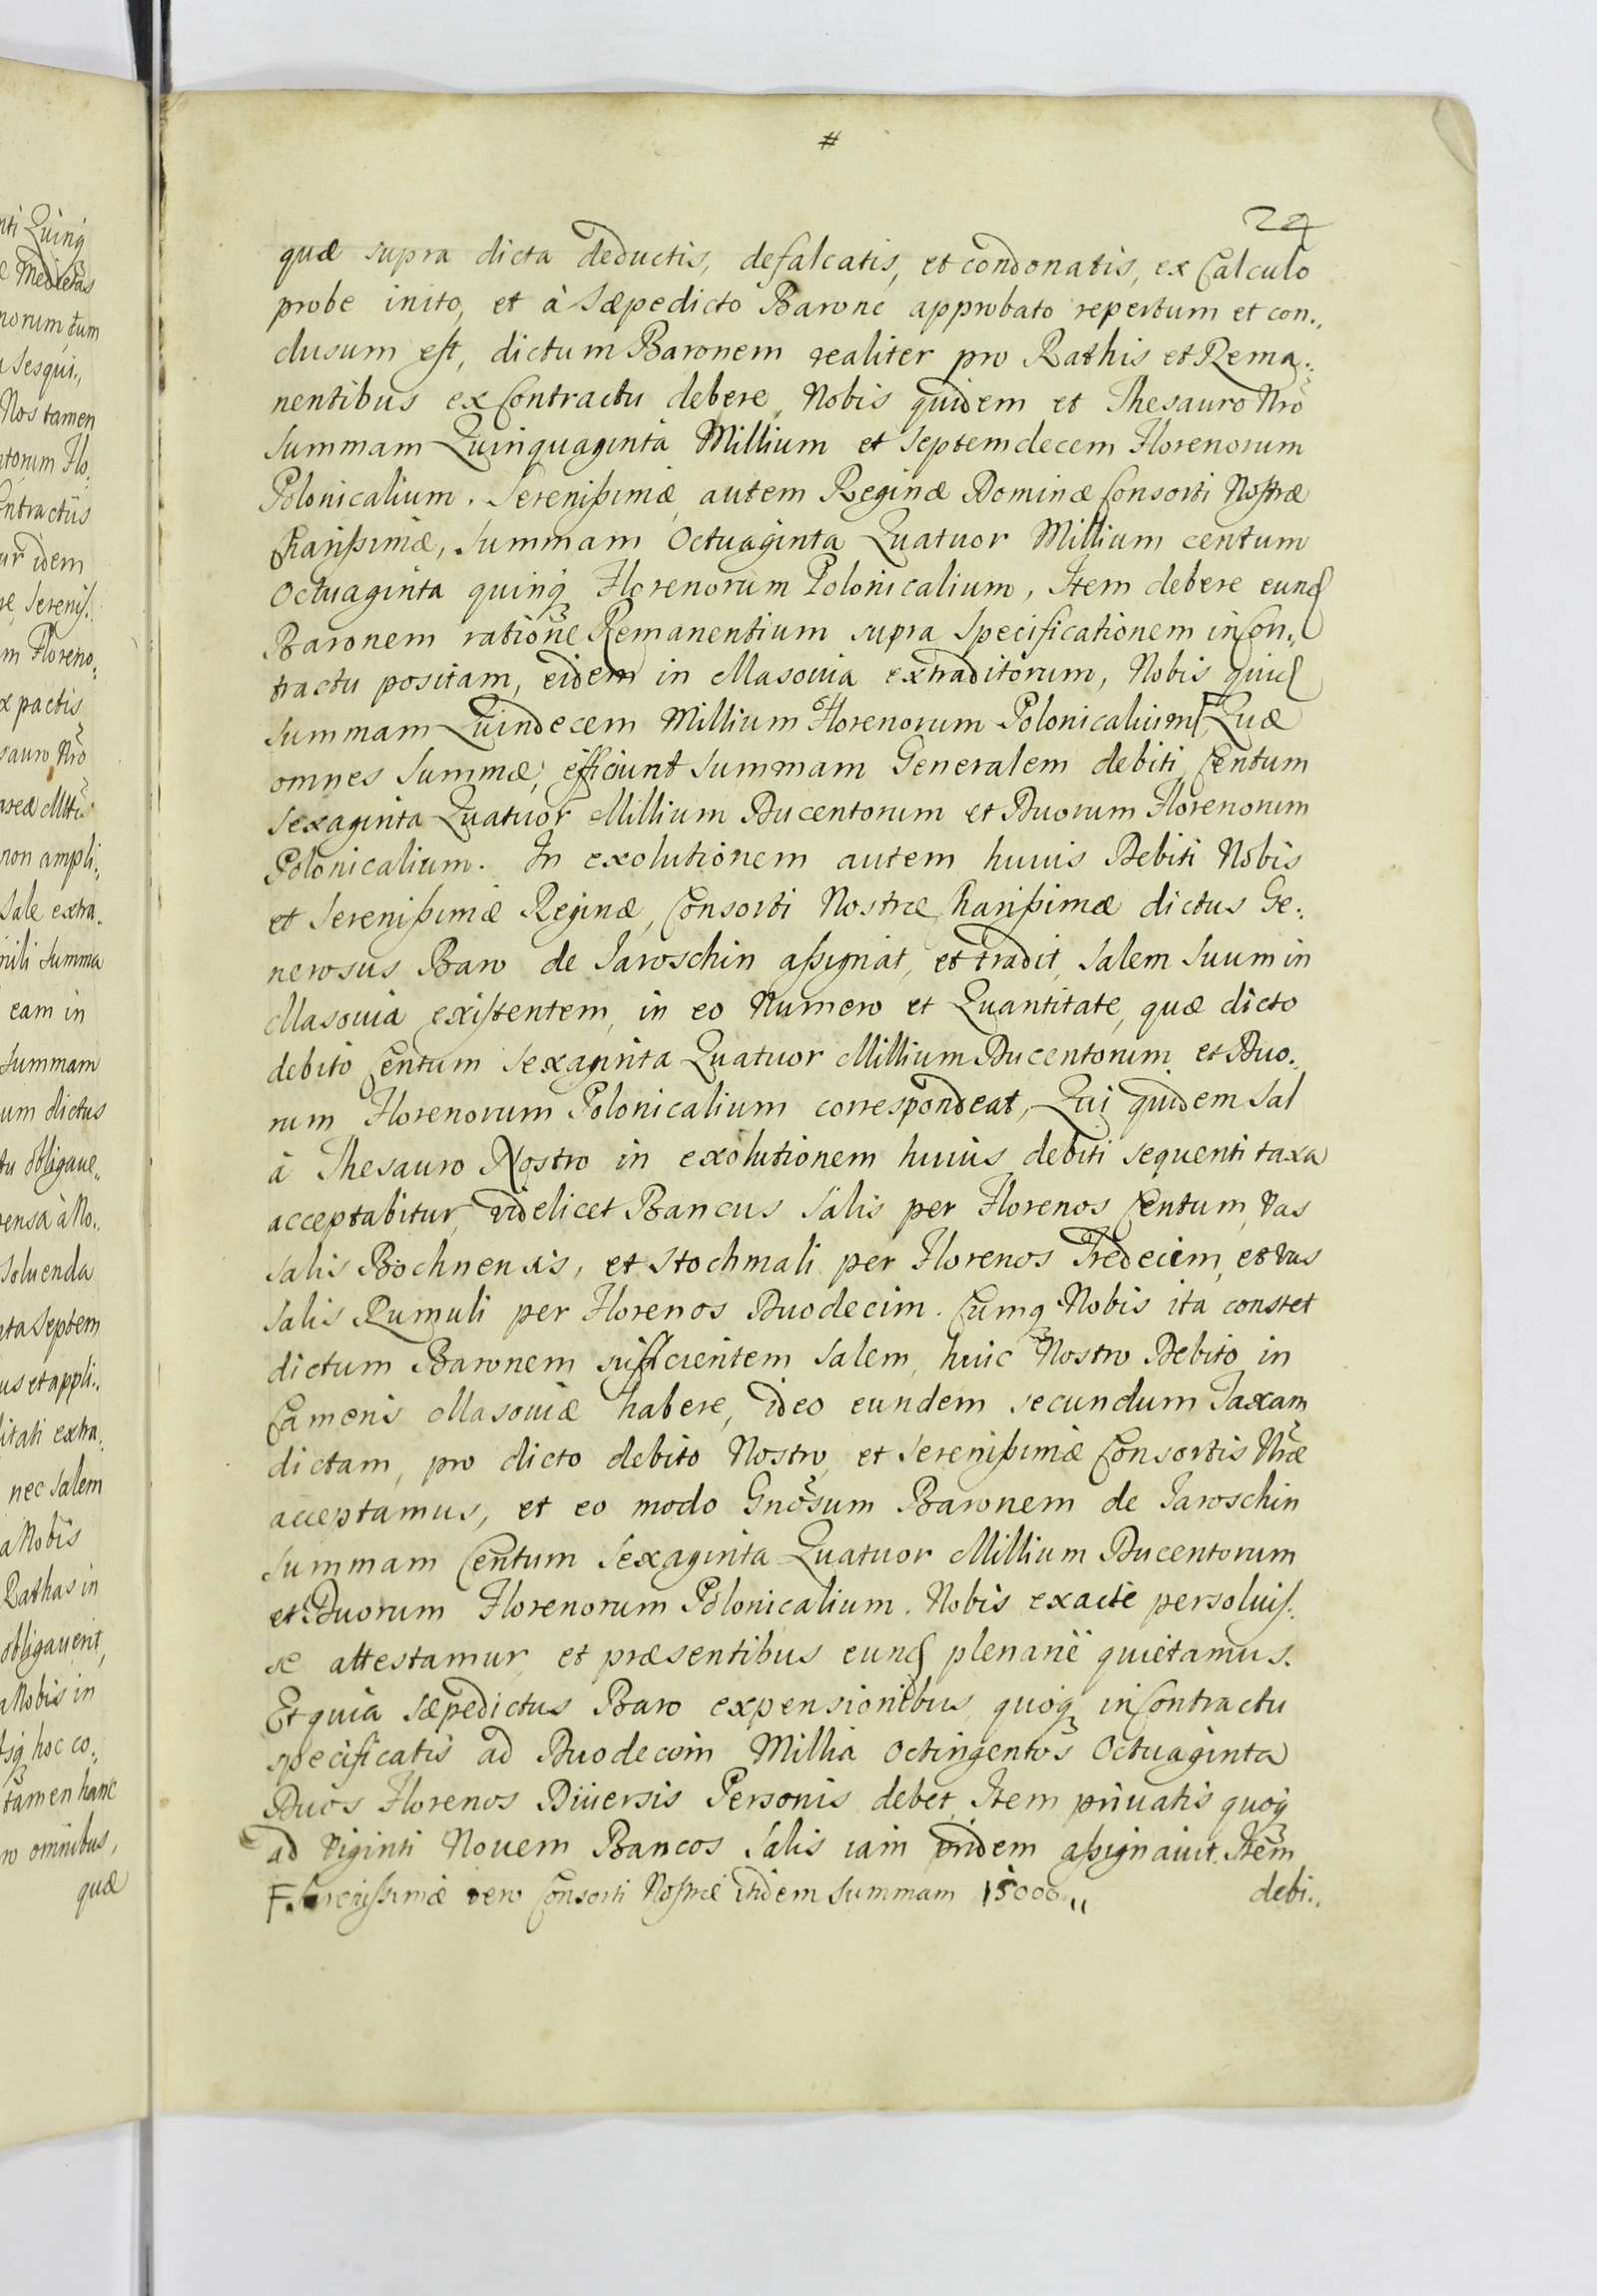 #
24
quæ supra dicta deductis, defalcatis, et condonatis, ex Calculo
probe inito, et à Sæpedicto Barone approbato repertum et con„
clusum est, dictum Baronem realiter pro Rathis et Rema„
nentibus ex Contractu debere, Nobis quidem et Thesauro Nro
Summam Quinquaginta Millium et Septemdecem Florenorum
Polonicalium. Serenißimæ autem Reginæ Dominæ Consorti Nostræ
Charißimæ, Summam Octuaginta Quatuor Millium centum
Octuaginta quinq Florenorum Polonicalium, Item debere eund
Baronem ratione Remanentium supra Specificationem in Con„
tractu positam, eidem in Masouia extraditorum, Nobis quid
Summam Quindecem Millium Florenorum Polonicalium F Quæ
omnes Summæ, efficiunt Summam Generalem debiti Centum
Sexaginta Quatuor Millium Ducentorum et Duorum Florenorum
Polonicalium. In exolutionem autem huius Debiti Nobis
et Serenißimæ Reginæ, Consorti Nostræ Charißimæ dictus Ge„
nerosus Baro de Jaroschin aßignat, et tradit, Salem Suum in
Masouia existentem, in eo Numero et Quantitate, quæ dicto
debito Centum Sexaginta Quatuor Millium Ducentorum et Duo„
rum Florenorum Polonicalium correspondeat, Qui quidem Sal
à Thesauro Nostro in exolutionem huius debiti sequenti taxa
acceptabitur, videlicet Bancus Salis per Florenos Centum, Vas
Salis Bochnensis, et Stochmali per Florenos Tredecim, et Vas
Salis Rumuli per Florenos Duodecim. Cumq Nobis ita constet
dictum Baronem sufficientem Salem, huic Nostro Debito in
Cameris Masouiæ habere, ideo eundem secundum Taxam
dictam, pro dicto debito Nostro, et Serenißimæ Consortis Nræ
acceptamus, et eo modo Gnosum Baronem de Jaroschin
Summam Centum Sexaginta Quatuor Millium Ducentorum
et Duorum Florenorum Polonicalium. Nobis exacte persoluis„
se attestamur, et præsentibus eund plenariè quietamus.
Et quia sæpedictus Baro expensionibus quoq in Contractu
specificatis ad Duodecim Millia Octingentos Octuaginta
Duos Florenos Diuersis Personis debet, Item priuatis quoq
ad Viginti Nouem Bancos Salis iam pridem aßignauit. Item
F. Serenissimæ vero Consorti Nostræ itidem Summam 15000„
debi„